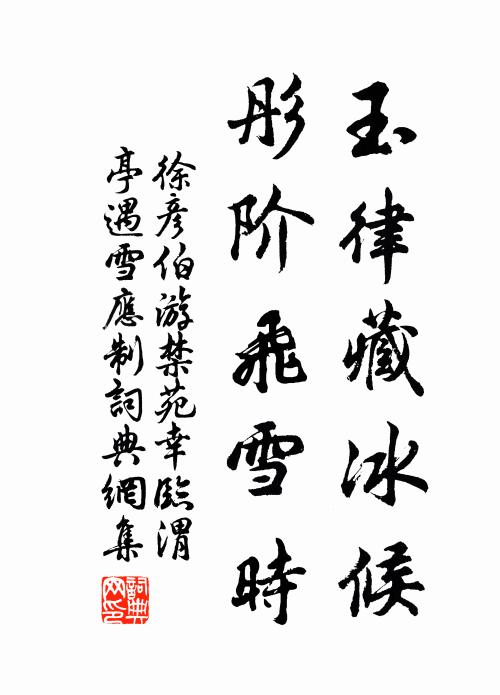 玉律藏冰候
彤阶飛雪時
徐彦伯游禁苑幸臨渭
亭遇雪應制詞典網集
詞典网印